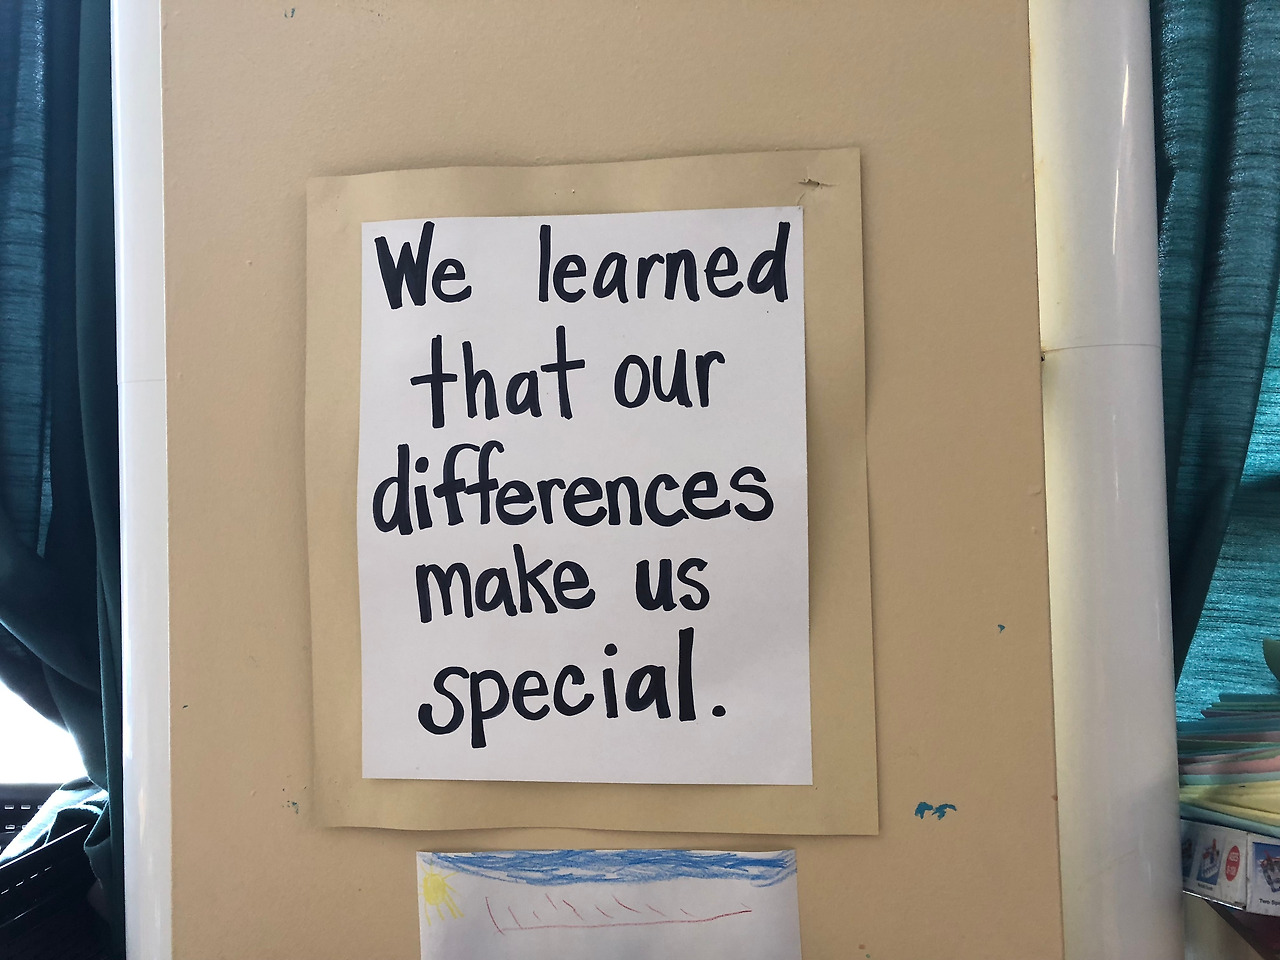 We learned
that our
differences
make us
special.